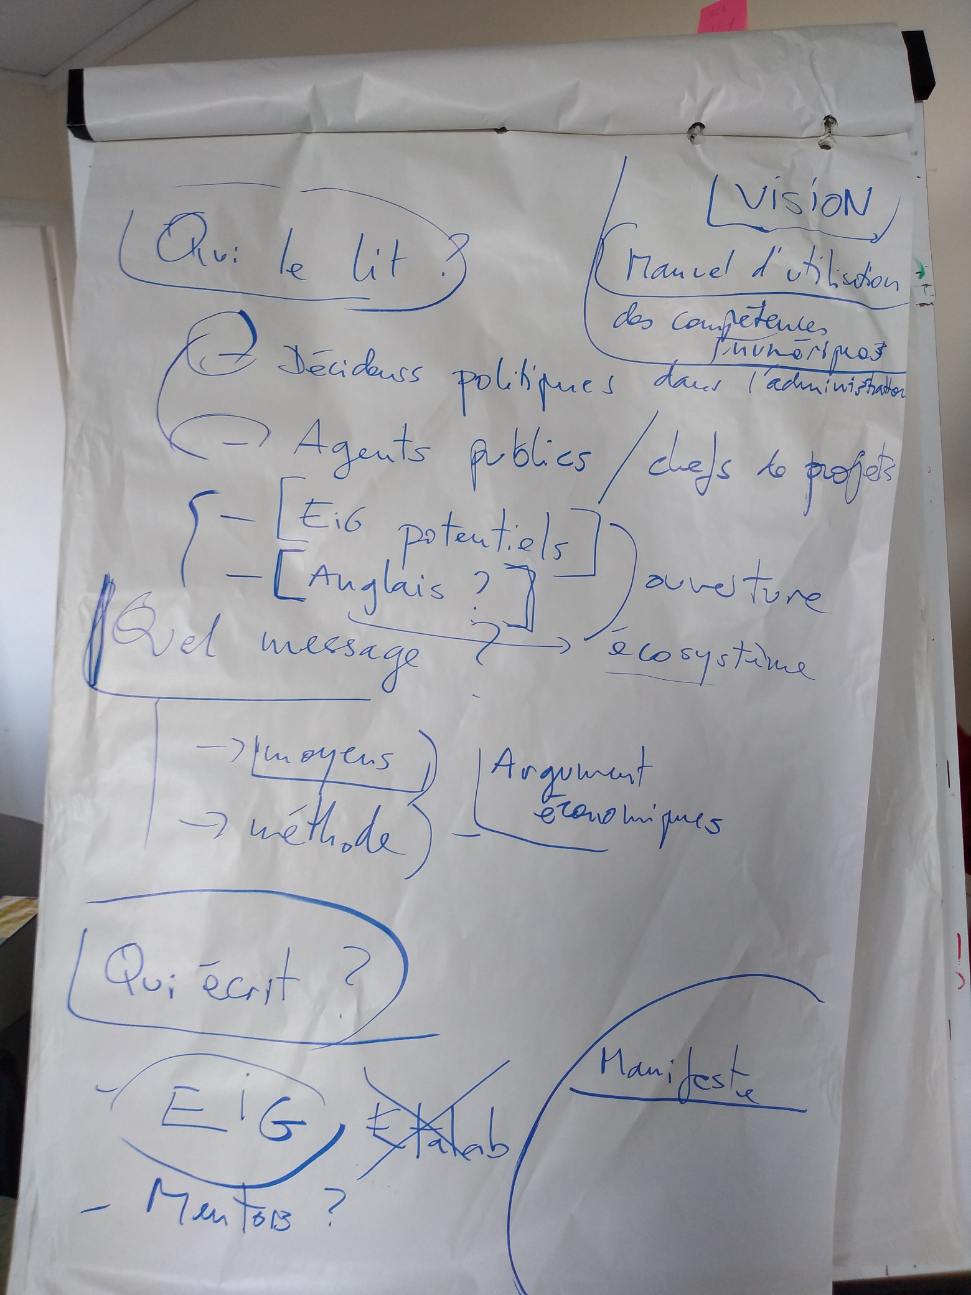 VISION
Manuel d'utilisation
des compétences
numériques
dans l'administration
Qui le lit ?
- Décideurs politiques
- Agents publics / chefs de projets
- [EiG potentiels]
- [Anglais ?]
ouverture
→ écosystème
Quel message ?
→ moyens
→ méthode
Argument
économiques
Qui écrit ?
- EiG Etalab
- Mentors ?
Manifeste